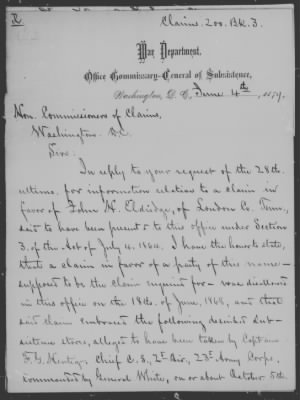 R
Claims. 200. Bk. 3.
War Department,
Office Commissary-General of Subsistence,
Washington, D. C., June 4th, 1879.
Hon. Commissioners of Claims,
Washington. D.C.
Sirs:
In reply to your request of the 28th.
ultimo, for information relative to a claim in
favor of John H. Eldridge, of Loudon Co. Tenn.,
said to have been presented to this office under Section
3, of the Act of July 4, 1864, I have the honor to state,
that a claim in favor of a party of this name—
supposed to be the claim inquired for— was disallowed
in this office on the 18th. of June, 1868, and that
said claim embraced the following described Sub-
sistence stores, alleged to have been taken by Captain
F. G. Chief C.S., 2d. Div., 23d. Army Corps,
commanded by General White, on or about October 5th.